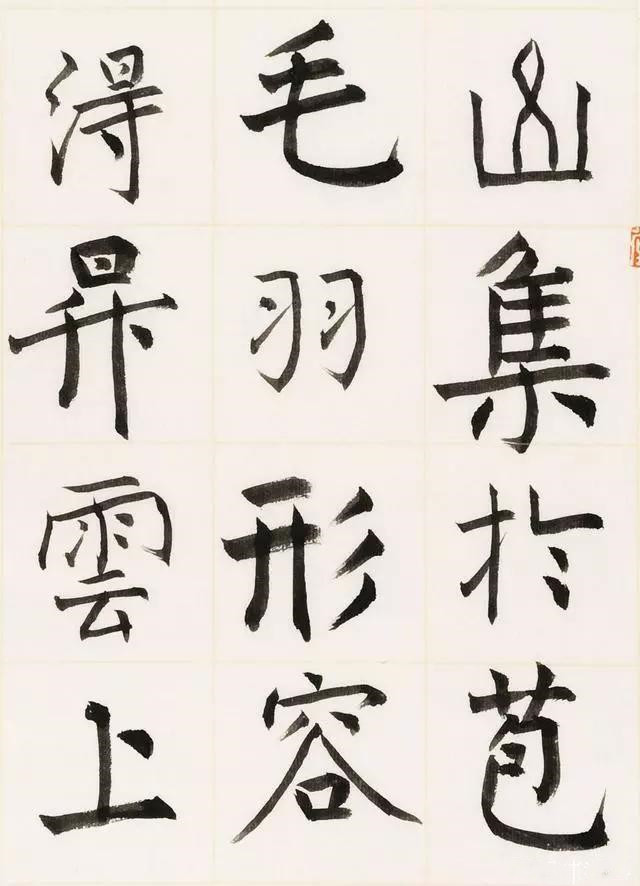 山集於苞
毛羽形容
得昇雲上